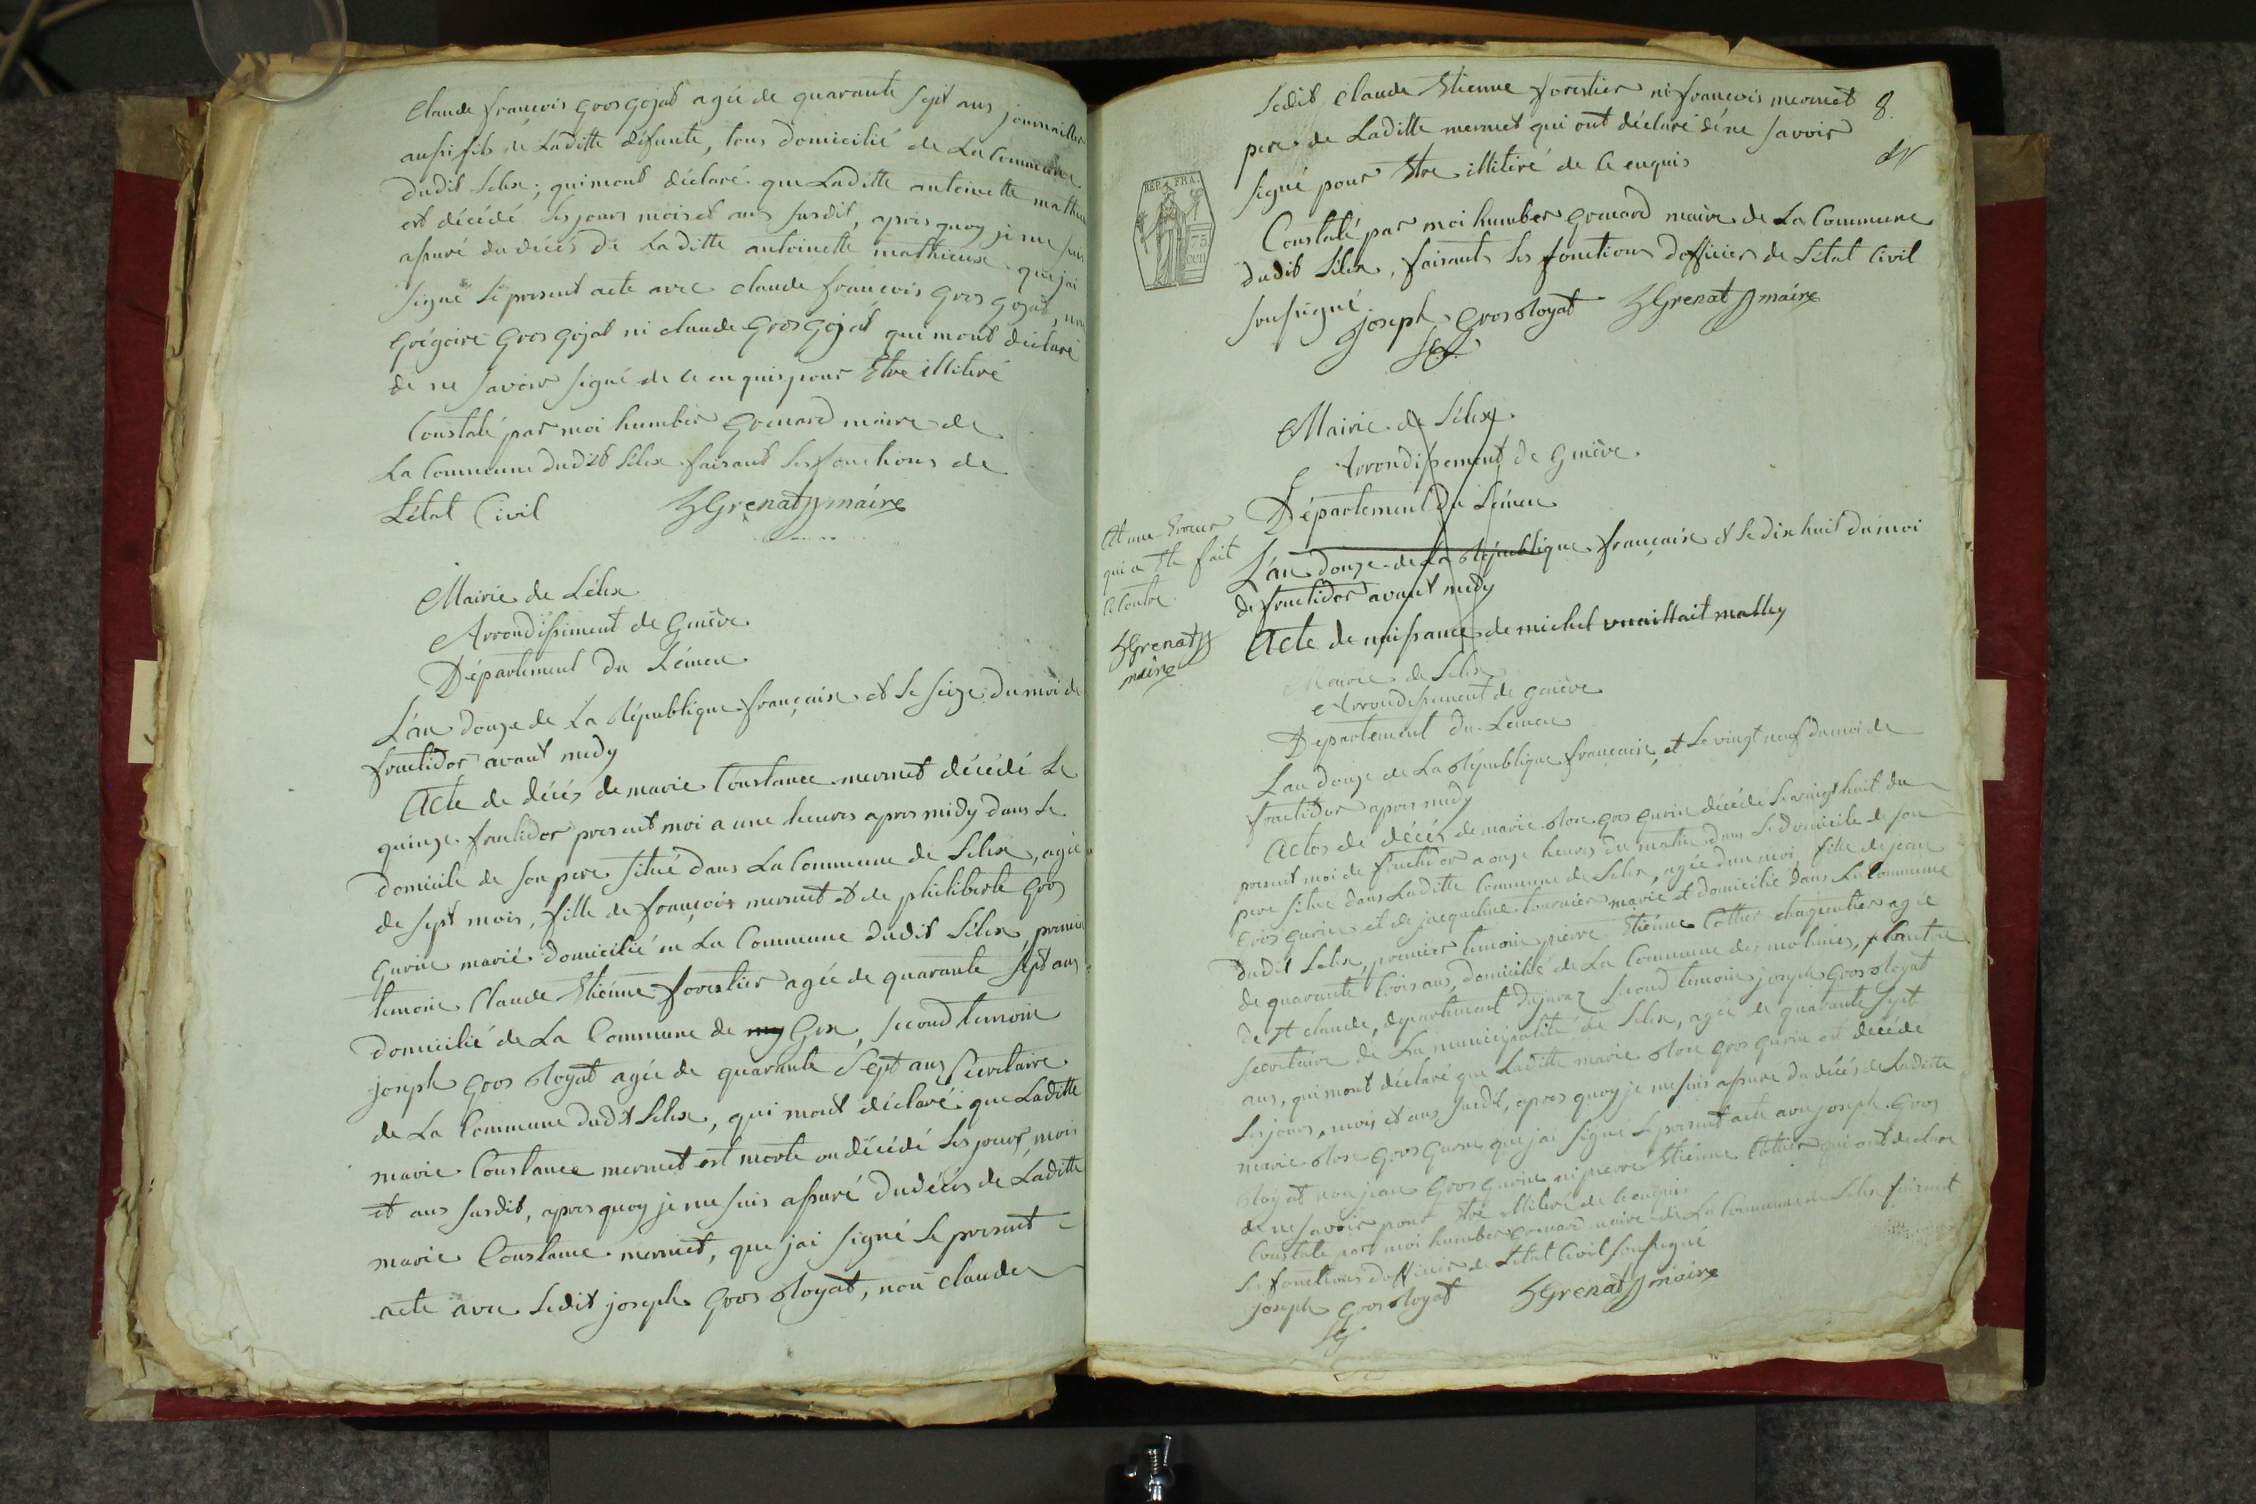 Claude françois Gros gojat agée de quarante sept ans journaillier
aussi fils de Laditte défunte, tous domicilié de La Commune
dudit Lelex; qui mont déclaré que Laditte antoinette mathieux
est décédé les jours mois et ans susdit, apres quoy je me suis
assuré du décés de Laditte antoinette mathieux que jai
signé le present acte avec claude françois Gros gojat, non
Grégoire Gros gojat ni claude Gros gojat qui mont déclaré
de ne savoir signé de ce enquis pour Etre illitiré
Constaté par moi humber Grenard maire de
La Commune dudit Lélex faisant les fonctions de
Létat Civil hGrenat maire
Mairie de Lélex
Arrondissiment de Genève
Département du Léman
L'an douze de La République française et le seize du moi de
fructidor avant midy
Acte de décés de marie Constance mermet décédé le
quinze fructidor present moi a une heures apres midy dans le
domicile de son pere situé dans La Commune de Lelex, agée
de sept mois, fille de françois mermet et de philiberte Gros
Gurin marié domicilié en La Commune dudit Lélex, premier
temoin Claude Etiénne forestier agée de quarante sept ans
domicilié de La Commune de Gex, second temoin
joseph Gros Royat agée de quarante Sept ans Secretaire
de La Commune dudit Lelex, qui mont déclaré que Laditte
marie Constance mermet est morte ou décédé les jours mois
et ans susdit, apres quoy je me suis assuré du décés de Laditte
marie Constance mermet, que jai signé le present
acte avec ledit joseph Gros Royat, non claude
8.
ledit Claude Etienne forestier ni françois mermet
pere de Laditte mermet qui ont déclaré de ne savoir
signé pour Etre illitiré de ce enquis
Constaté par moi humber Grenard maire de La Commune
dudit Lélex, faisant les fonctions dofficier de Létat Civil
sousigné
joseph Gros Royat hGrenat maire
REP. FRA.
75
Mairie de Lélex
Arrondissement de Genève.
Département du Léman
L'an douze de La République française et le dix huit du moi
de fructidor avant midy
Acte de naissance de michel vuaillait mally
Cet une Erreur
qui a Ete fait
hGrenat
maire
Mairie de Lelex
Arrondissement de Genève
Departement du Leman
Lan douze de La République française et Le vingt neuf du moi de
fructidor apres midy
Actes de décés de marie Rose gros gurin décédé Le vingt huit du
present moi de fructidor a onze heures du matin dans le domicile de son
pere situé dans Laditte Commune de Lelex, agée dun moi, fille de jean
Gros gurin et de jacqueline tournier marié et domicilié dans La Commune
dudit Lelex, premier temoin pierre Etiénne Cottier charpentier agée
de quarante trois ans, domicilié de La Commune des molunes,
de St claude, departement du jura, second temoin joseph Gros Royat
secretaire de La municipalité de Lelex, agée de quarante sept
ans, qui mont déclaré que Laditte marie Rose gros gurin est decédé
Les jours, mois et ans susdit, apres quoy je me suis assure du décés de Laditte
marie Rose Gros Gurin que jai signé Le present acte avec joseph Gros
Royat non jean Gros gurin ni pierre Etiénne Cottier qui ont declaré
de ne savoir pour Etre illitiré de ce enquis
Constaté par moi humber Grenard maire de La Commune de Lelex faisant
Les fonctions dofficier de Létat Civil sousigné
joseph Gros Royat hGrenat maire